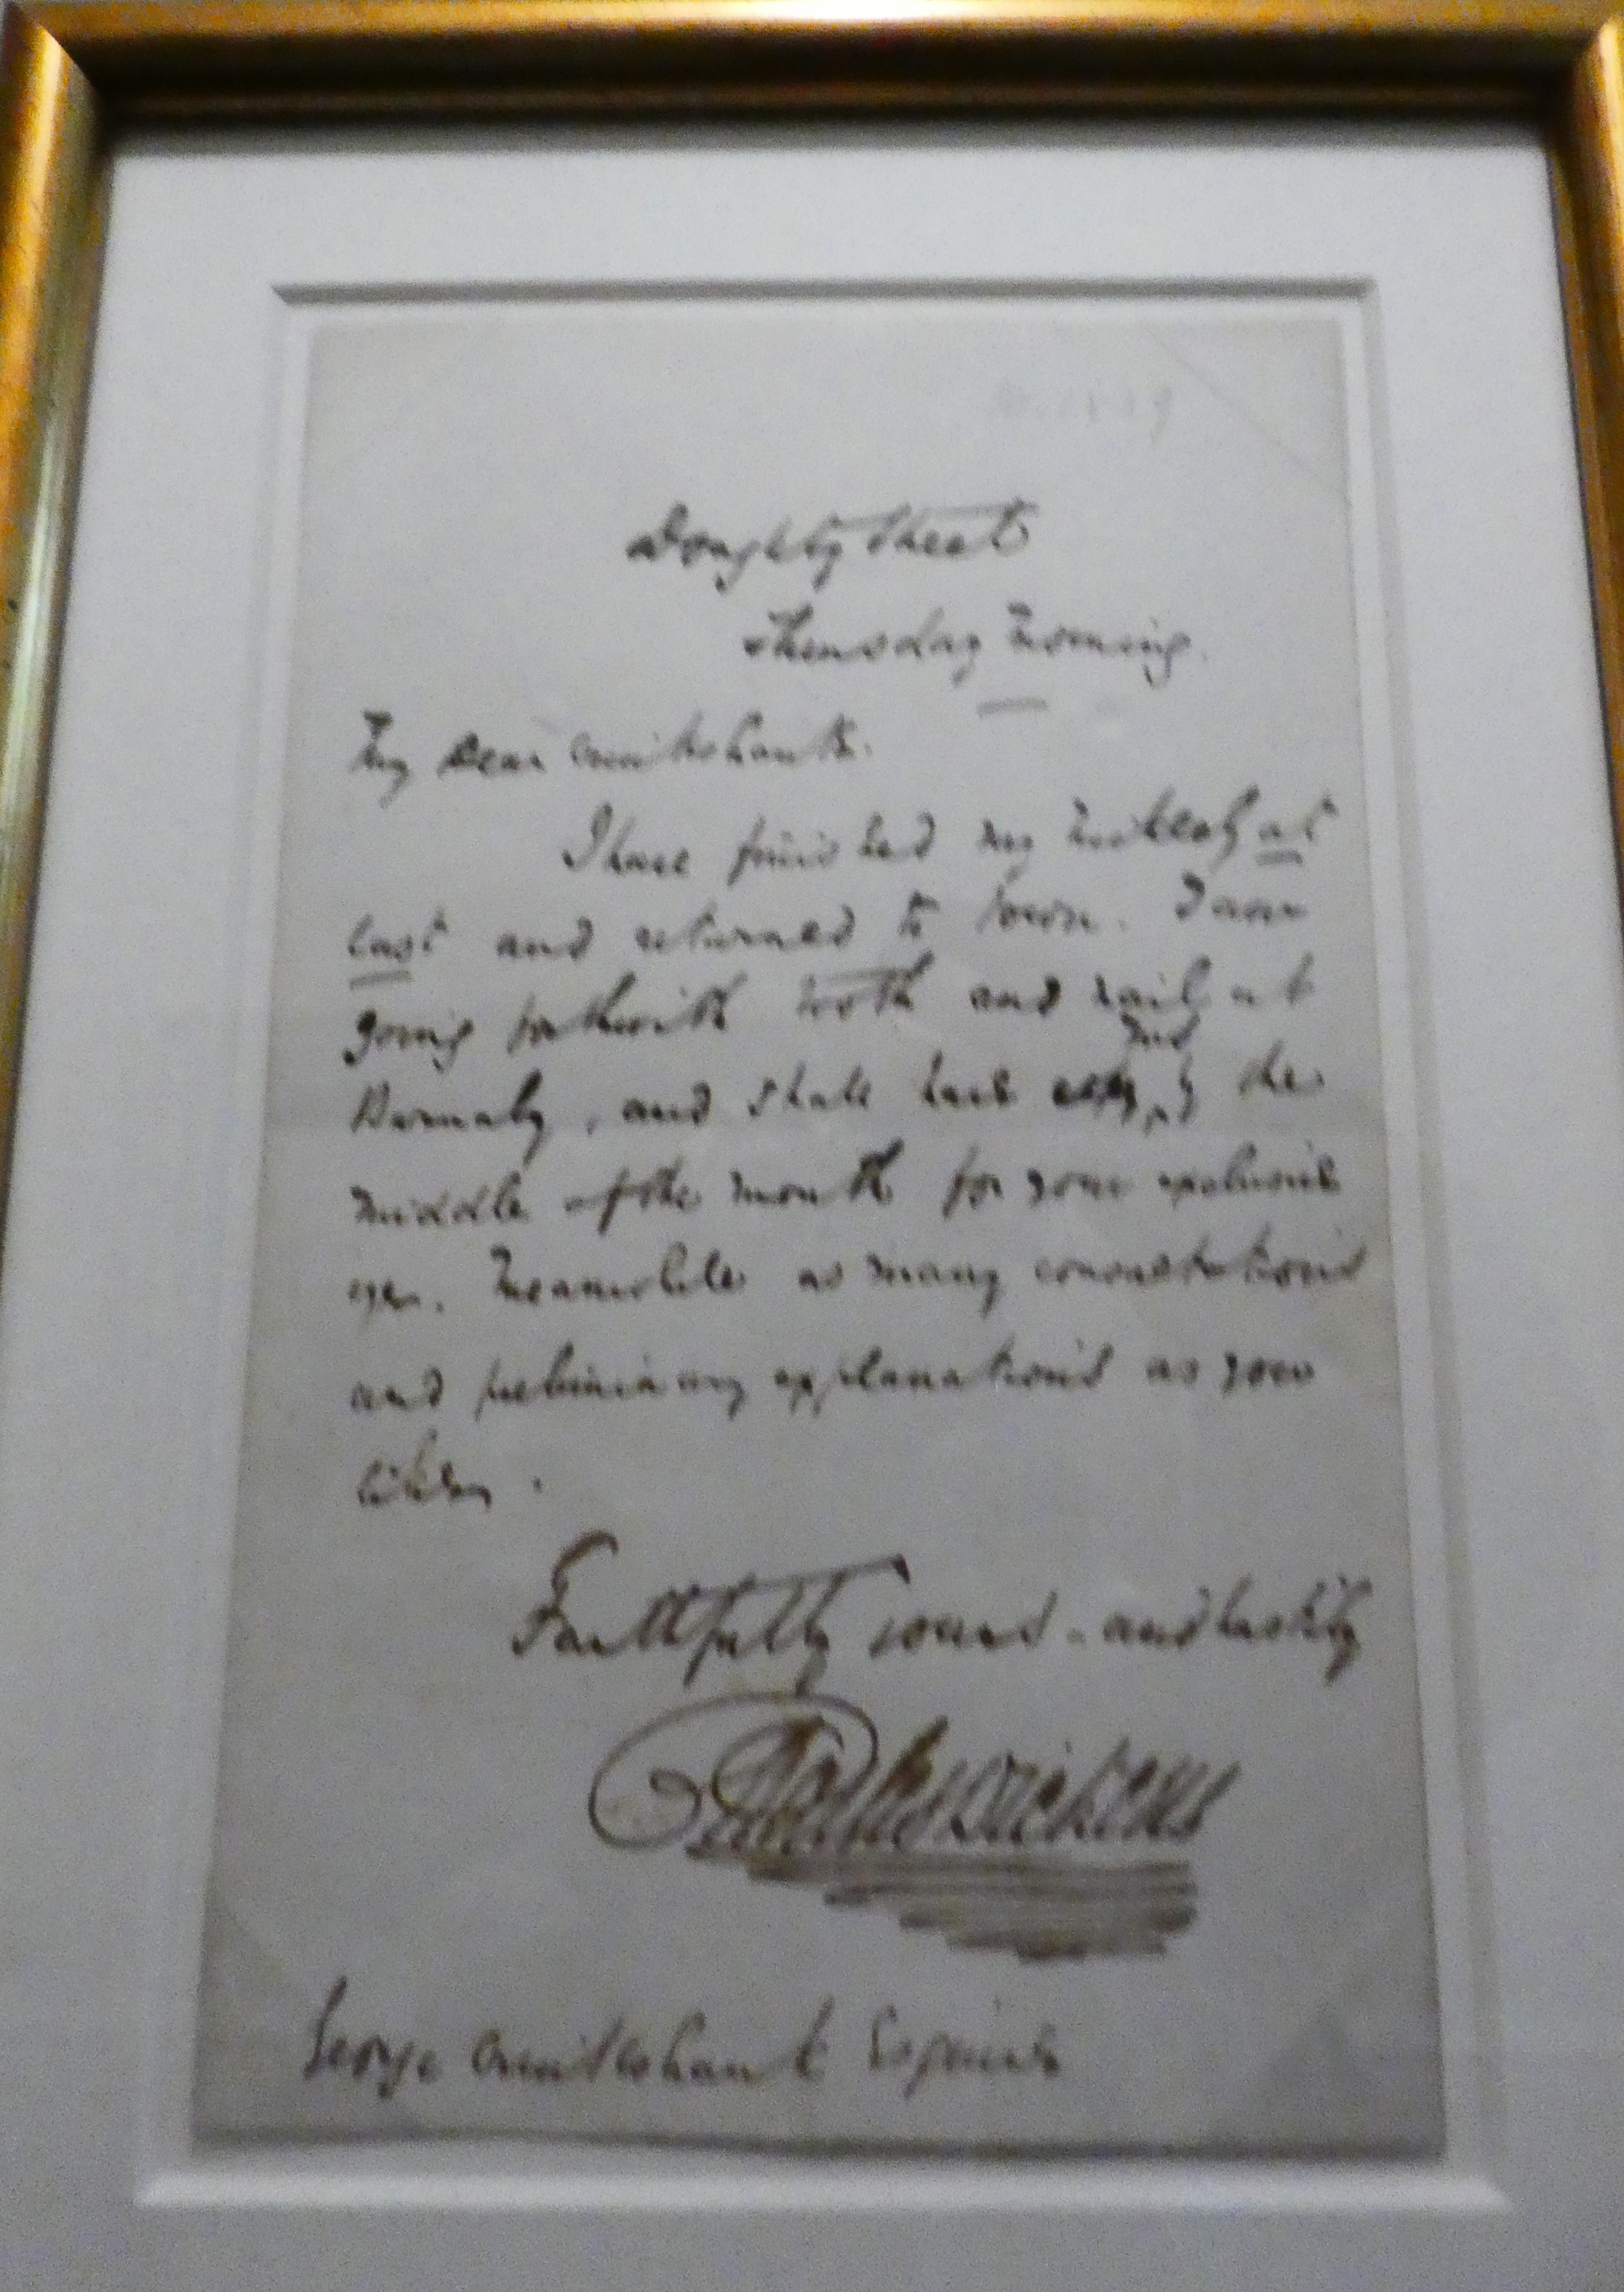 Doughty Street
Thursday Morning.
My Dear Cruikshank.
I have finished my Nickleby at
last and returned to town. I am
going forthwith tooth and nail at
Barnaby, and shall have by the
middle of the month for your exclusive
eye. Meanwhile as many consultations
and preliminary explanations as you
like.
Faithfully yours - and lastily
Charles Dickens
George Cruikshank Esquire